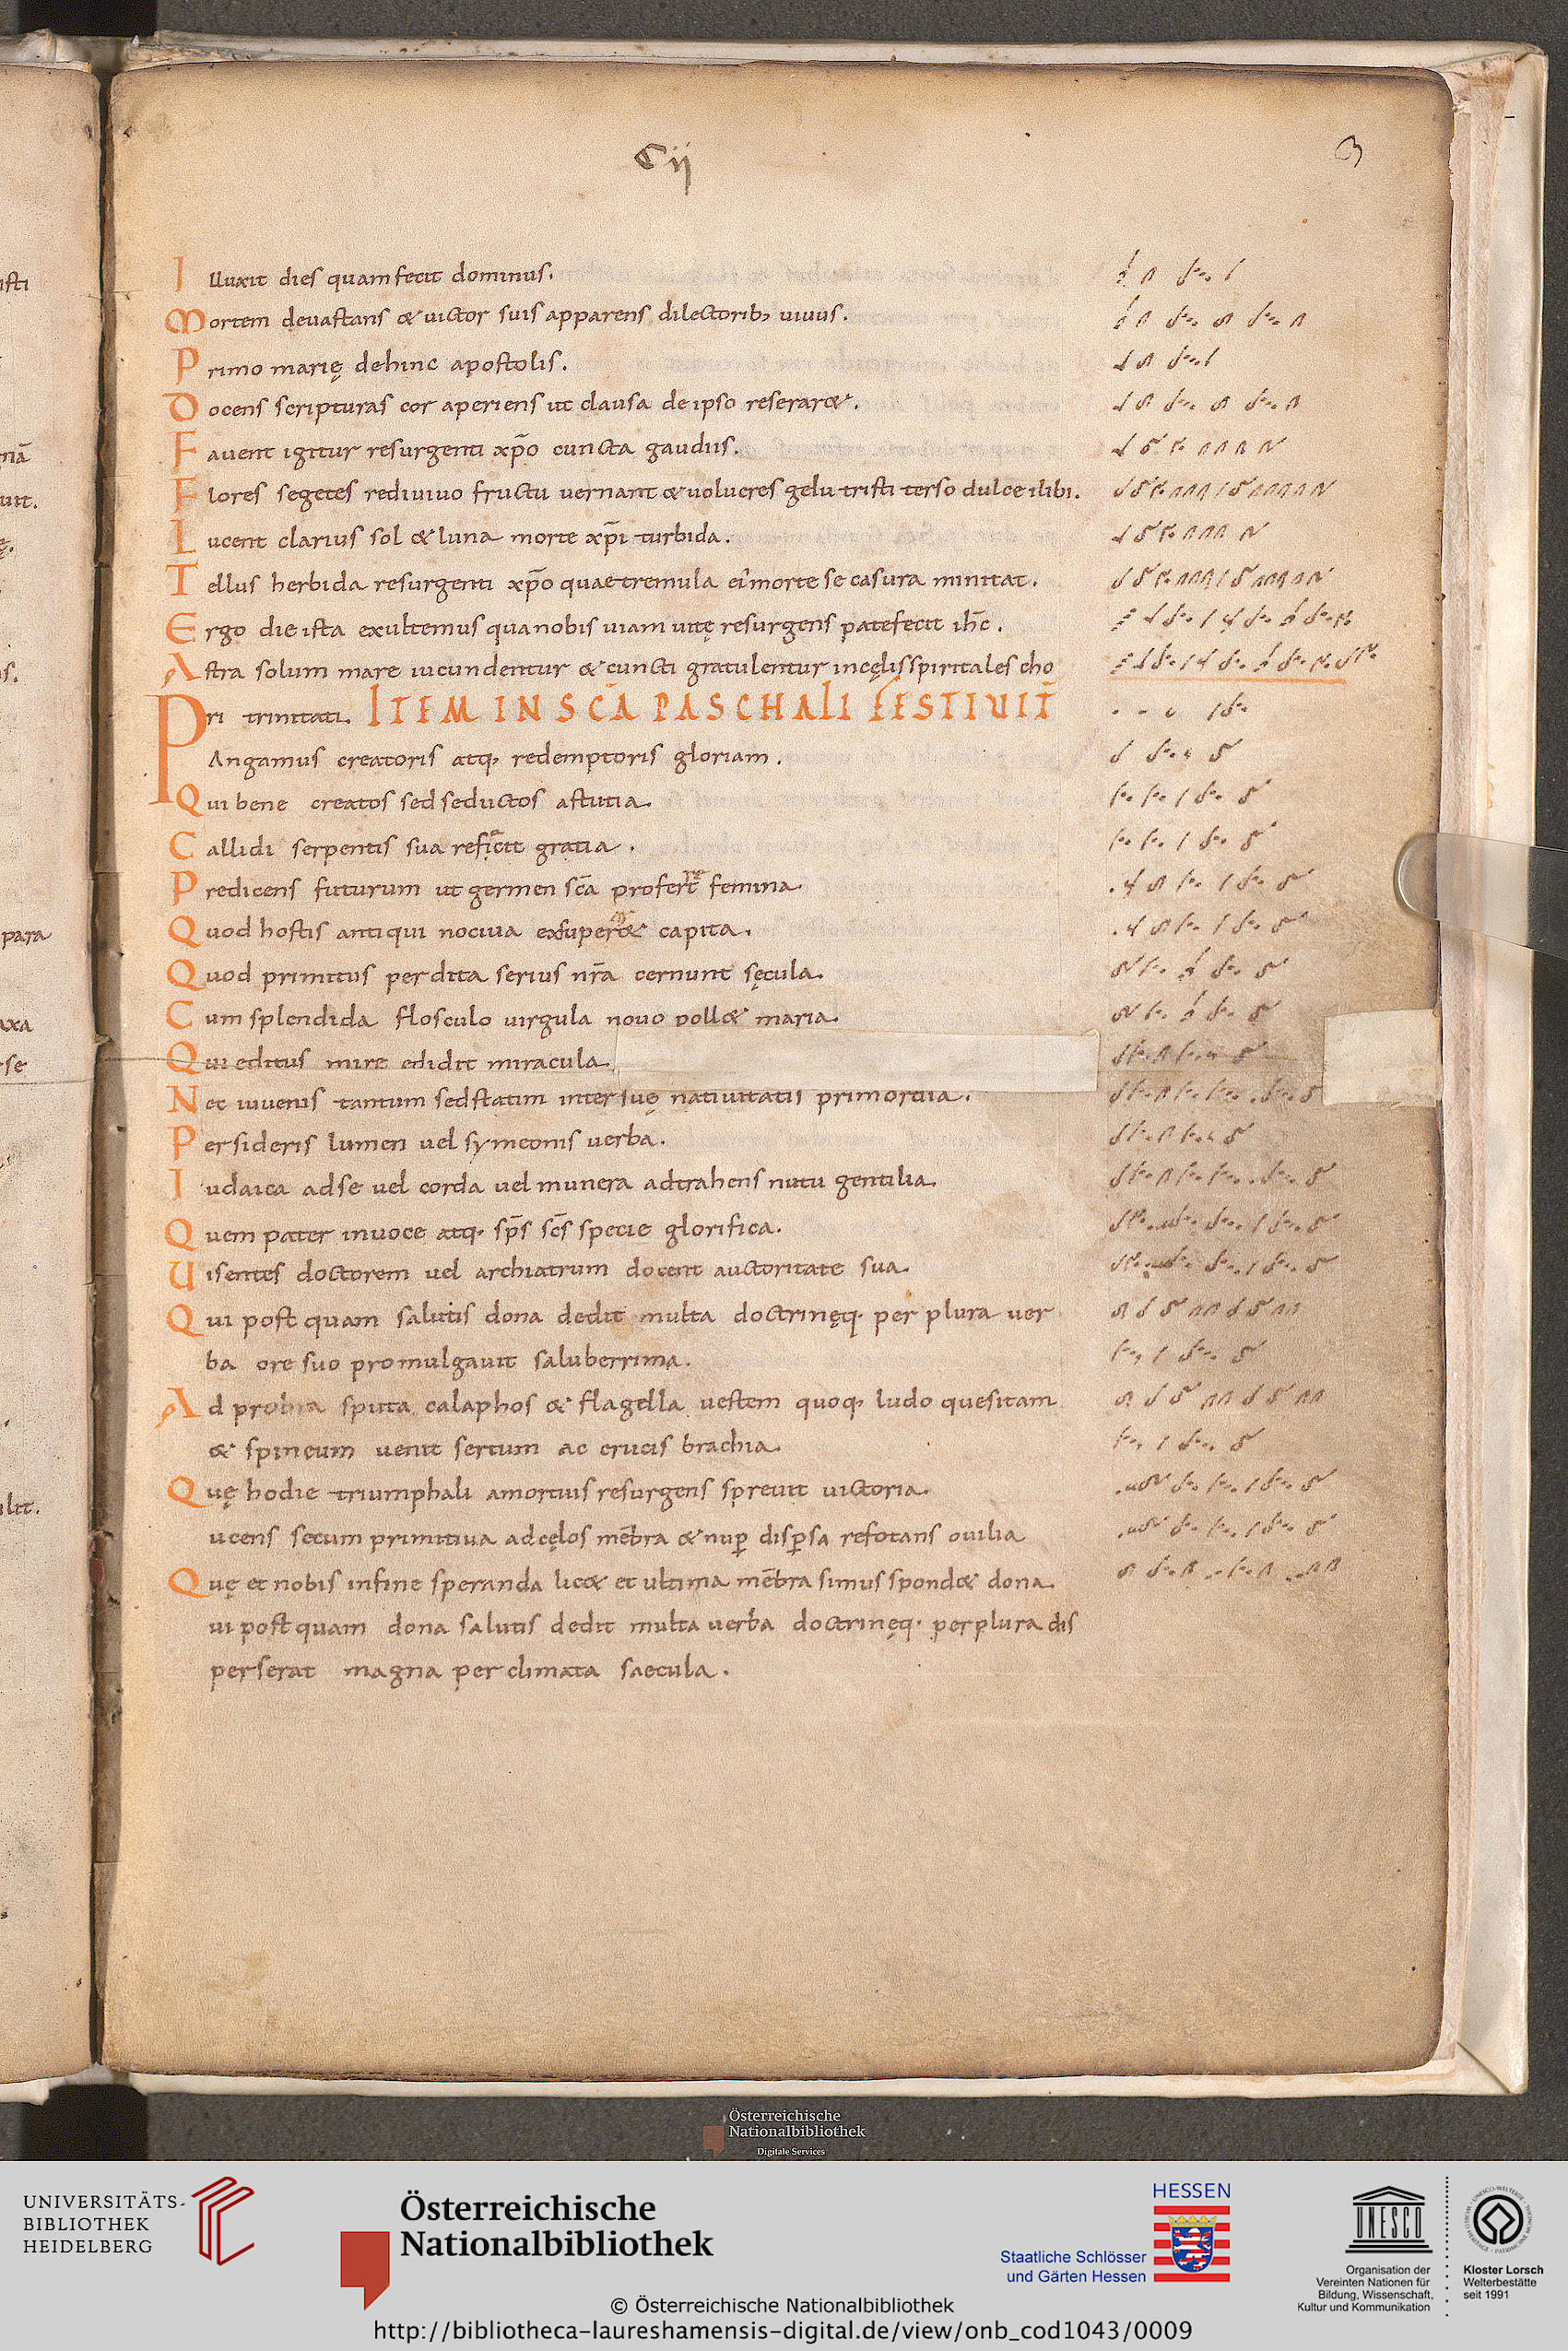 Cij
3
Illuxit dies quam fecit dominus.
Mortem deuastans & uictor suis apparens dilectorib; uiuus.
Primo marię dehinc apostolis.
Docens scripturas cor aperiens ut clausa de ipso reserar&.
Fauent igitur resurgenti xp̄o cuncta gaudiis.
Flores segetes rediuiuo fructu uernant & uolucres gelu tristi terso dulce iubi.
Lucent clarius sol & luna morte xp̄i turbida.
Tellus herbida resurgenti xp̄o quae tremula ei morte se casura minitat.
Ergo die ista exultemus qua nobis uiam uitę resurgens patefecit ih̄c.
Astra solum mare iucundentur & cuncti gratulentur in cęlis spiritales cho
ri trinitati. ITEM IN SC̄A PASCHALI FESTIUIT̄
PAngamus creatoris atq; redemptoris gloriam.
Qui bene creatos sed seductos astutia.
Callidi serpentis sua reficit gratia.
Predicens futurum ut germen sc̄a profert femina.
Quod hostis antiqui nociua exsuper& capita.
Quod primitus perdita serius nr̄a cernunt sęcula.
Cum splendida flosculo uirgula nouo poll& maria.
Qui editus mire edidit miracula.
Nec iuuenis tantum sed statim inter suę natiuitatis primordia.
Per sideris lumen uel symeonis uerba.
Iudaica ad se uel corda uel munera adtrahens nutu gentilia.
Quem pater in uoce atq; sp̄s sc̄s specie glorifica.
Uisentes doctorem uel archiatrum docent auctoritate sua.
Qui post quam salutis dona dedit multa doctrinęq; per plura uer
ba ore suo promulgauit saluberrima.
Ad probra sputa calaphos & flagella uestem quoq; ludo quesitam
& spineum uenit sertum ac crucis brachia.
Quę hodie triumphali a mortuis resurgens spreuit uictoria.
ucens secum primitiua ad cęlos mēbra & nup̄ disp̄sa refotans ouilia
Quę et nobis in fine speranda lic& et ultima mēbra simus spond& dona.
ui post quam dona salutis dedit multa uerba doctrinęq; per plura dis
perserat magna per climata saecula.
Österreichische
Nationalbibliothek
Digitale Services
UNIVERSITÄTS-
BIBLIOTHEK
HEIDELBERG
Österreichische
Nationalbibliothek
HESSEN
Staatliche Schlösser
und Gärten Hessen
UNESCO
Organisation der
Vereinten Nationen für
Bildung, Wissenschaft,
Kultur und Kommunikation
Kloster Lorsch
Welterbestätte
seit 1991
© Österreichische Nationalbibliothek
http://bibliotheca-laureshamensis-digital.de/view/onb_cod1043/0009